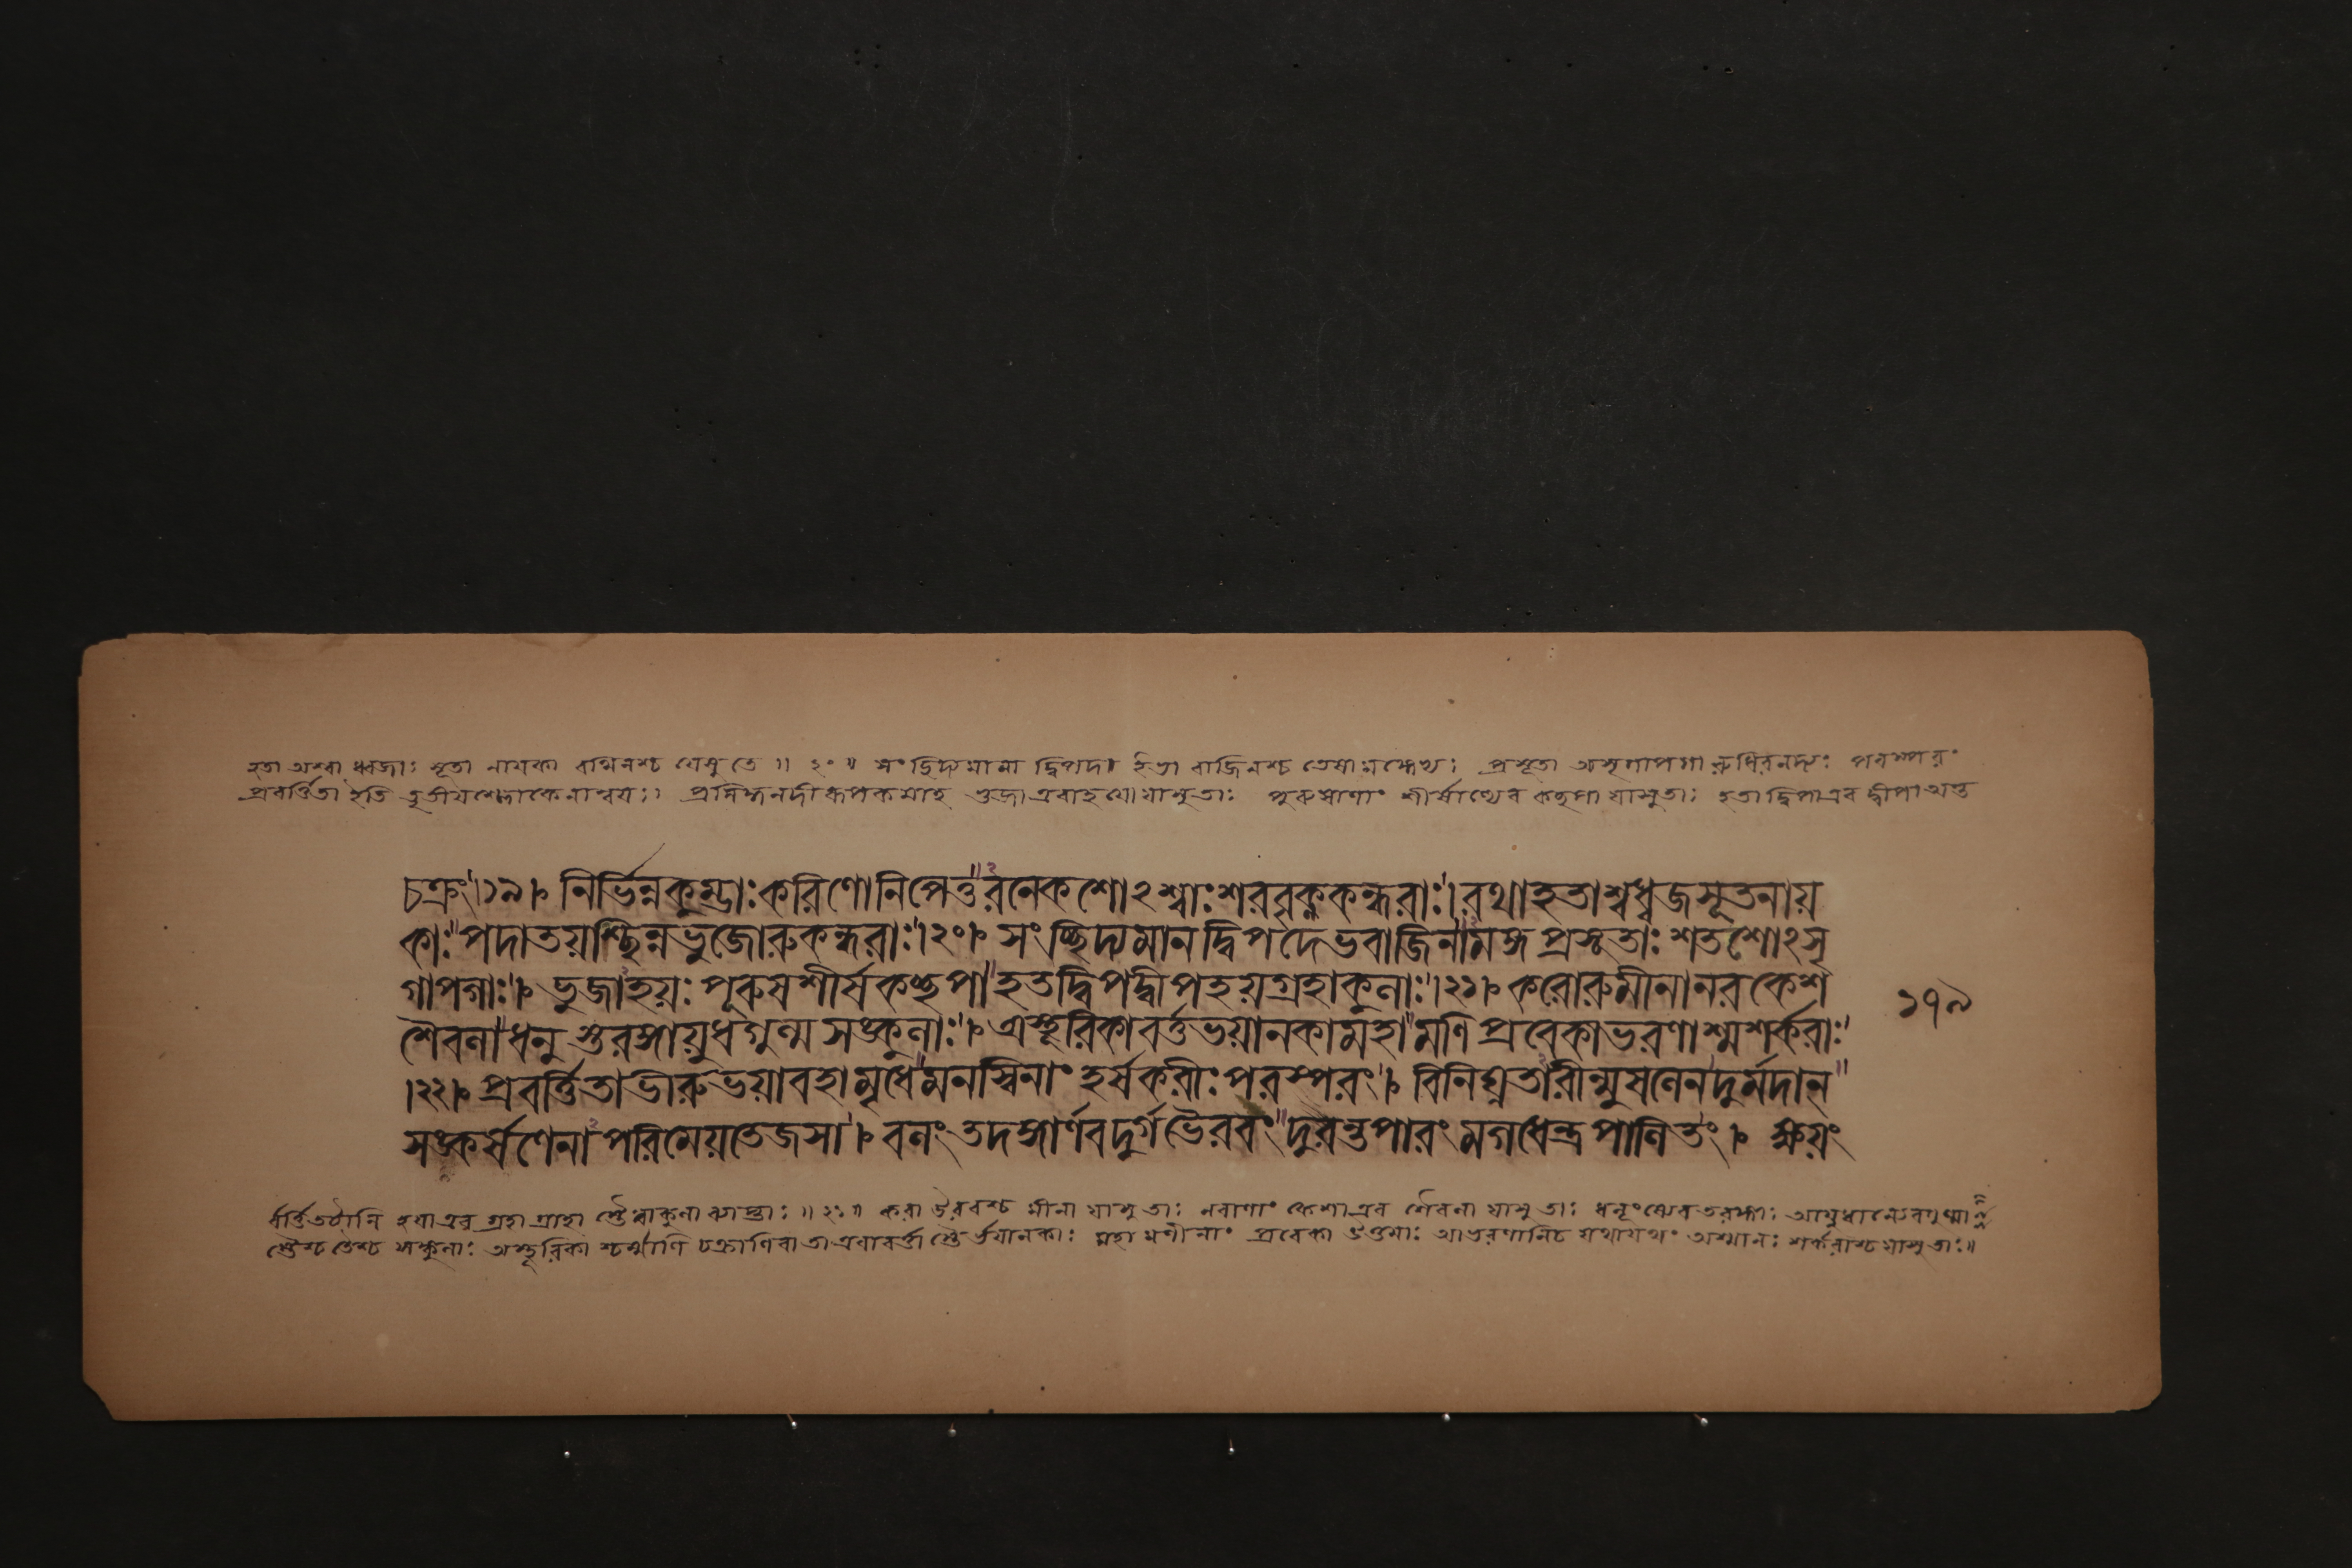 হতা অশ্বা ধ্বজাঃ সূতা নায়কা রথিনশ্চ যেষু তে ॥ ২০ ॥ সংছিদ্যমানা দ্বিপদা ইভা বাজিনশ্চ তেষামঙ্গেভ্যঃ প্রসূতা অসৃগাপগা রুধিরনদ্যঃ পরস্পরং
প্রবর্ত্তিতা ইতি তৃতীয়শ্লোকেনান্বয়ঃ। প্রসিদ্ধনদীরূপকমাহ ভুজা এবাহয়ো যাসু তাঃ পুরুষাণাং শীর্ষাণ্যেব কচ্ছপা যাসু তাঃ হতা দ্বিপা এব দ্বীপা অন্ত
চক্রুঃ।১৯। নির্ভিন্নকুম্ভাঃ করিণো নিপেতুরনেকশোঽশ্বাঃ শরবৃক্ণকন্ধরাঃ। রথা হতাশ্বধ্বজসূতনায়
কাঃ পদাতয়শ্ছিন্নভুজোরুকন্ধরাঃ।২০। সংচ্ছিদ্যমানদ্বিপদেভবাজিনামঙ্গপ্রসূতাঃ শতশোঽসৃ
গাপগাঃ। ভুজাহয়ঃ পূরুষশীর্ষকচ্ছপা হতদ্বিপদ্বীপহয়গ্রহাকুলাঃ।২১। করোরুমীনা নরকেশ
শৈবলা ধনুস্তরঙ্গায়ুধগুল্মসঙ্কুলাঃ। অচ্ছূরিকাবর্ত্তভয়ানকা মহামণিপ্রবেকাভরণাশ্মশর্করাঃ
।২২। প্রবর্ত্তিতা ভীরুভয়াবহা মৃধে মনস্বিনাং হর্ষকরীঃ পরস্পরং। বিনিঘ্নতারীন্মুষলেন দুর্মদান্
সঙ্কর্ষণেনাপরিমেয়তেজসা। বলং তদঙ্গার্ণবদুর্গভৈরবং দুরন্তপারং মগধেন্দ্রপালিতং। ক্ষয়ং
১৭৯
হয়া এব গ্রহা গ্রাহা স্তৈরাকুলা ব্যাপ্তাঃ ॥ ২১ ॥ করা ঊরবশ্চ মীনা যাসু তাঃ নরাণাং কেশা এব শৈবলা যাসু তাঃ ধনূংষ্যেব তরঙ্গাঃ আয়ুধান্যেব গুল্মা
স্তৈশ্চ তৈশ্চ সঙ্কুলাঃ অচ্ছূরিকাশ্চর্ম্মাণি চক্রাণি বা তা এবাবর্ত্তাস্তৈর্ভয়ানকাঃ মহামণীনাং প্রবেকা উত্তমাঃ আভরণানি চ যথাযথং অশ্মানঃ শর্করাশ্চ যাসু তাঃ॥